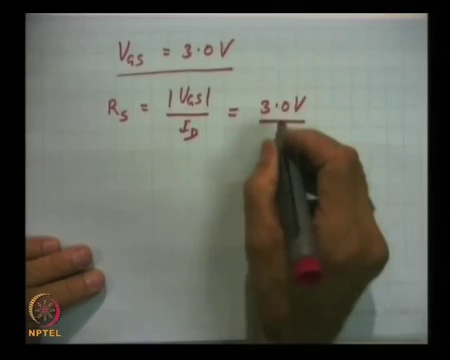 V_GS = 3.0 V
R_S = |V_GS| / I_D = 3.0 V
NPTEL